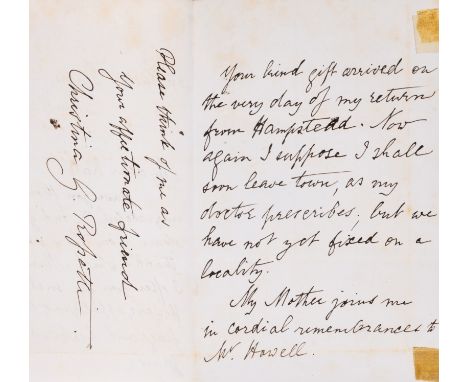 Your kind gift arrived on
the very day of my return
from Hampstead. Now
again I suppose I shall
soon leave town, as my
doctor prescribes; but we
have not yet fixed on a
locality.
My Mother joins me
in cordial remembrances to
Mr. Howell.
Please think of me as
Your affectionate friend
Christina G. Rossetti